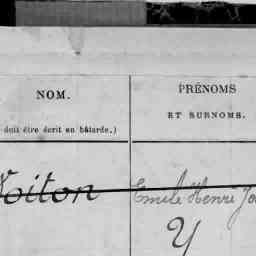 NOM.
doit être écrit en bâtarde.)
PRÉNOMS
ET SURNOMS.
Voiton
Emile Henri
Y